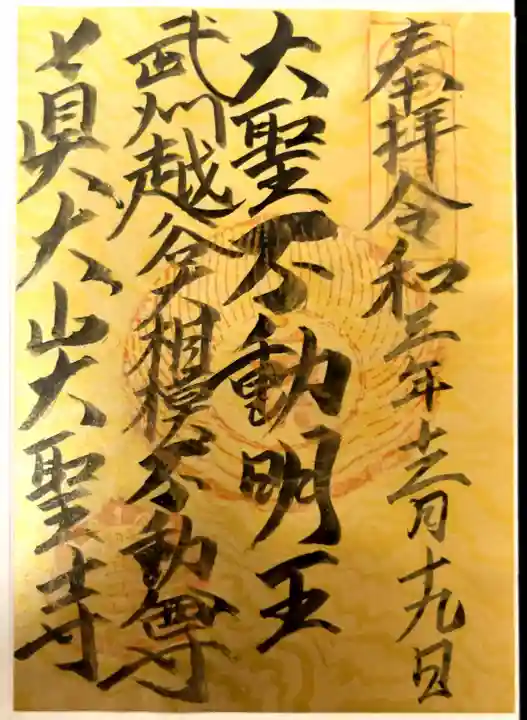 奉拝令和三年十二月十九日
大聖不動明王
武州越谷大相模不動尊
真大山大聖寺